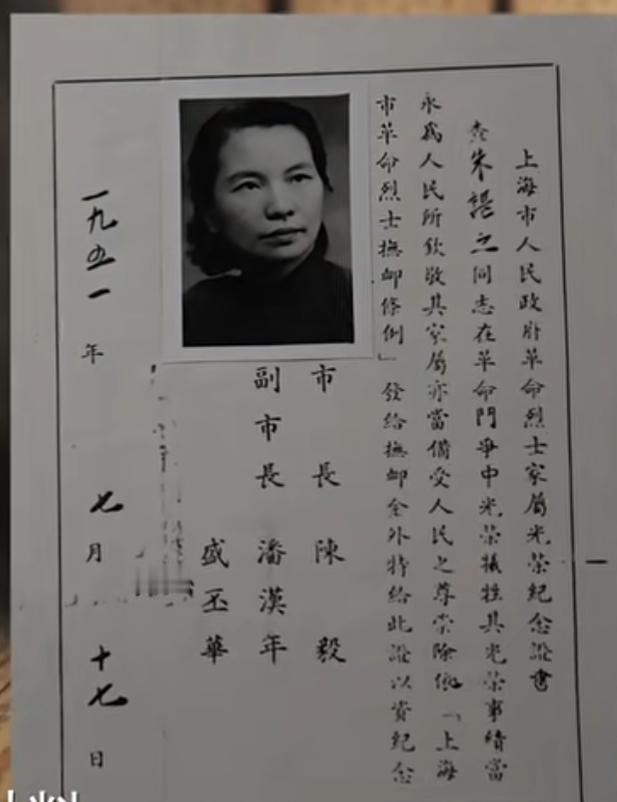 上海市人民政府革命烈士家屬光榮紀念證書
查朱諶之同志在革命鬥爭中光榮犧牲其光榮事蹟當
永為人民所欽敬其家屬亦當備受人民之尊崇除依「上海
市革命烈士撫卹條例」發給撫卹金外特給此證以資紀念
市長 陳毅
副市長 潘漢年
盛丕華
一九五一年七月十七日